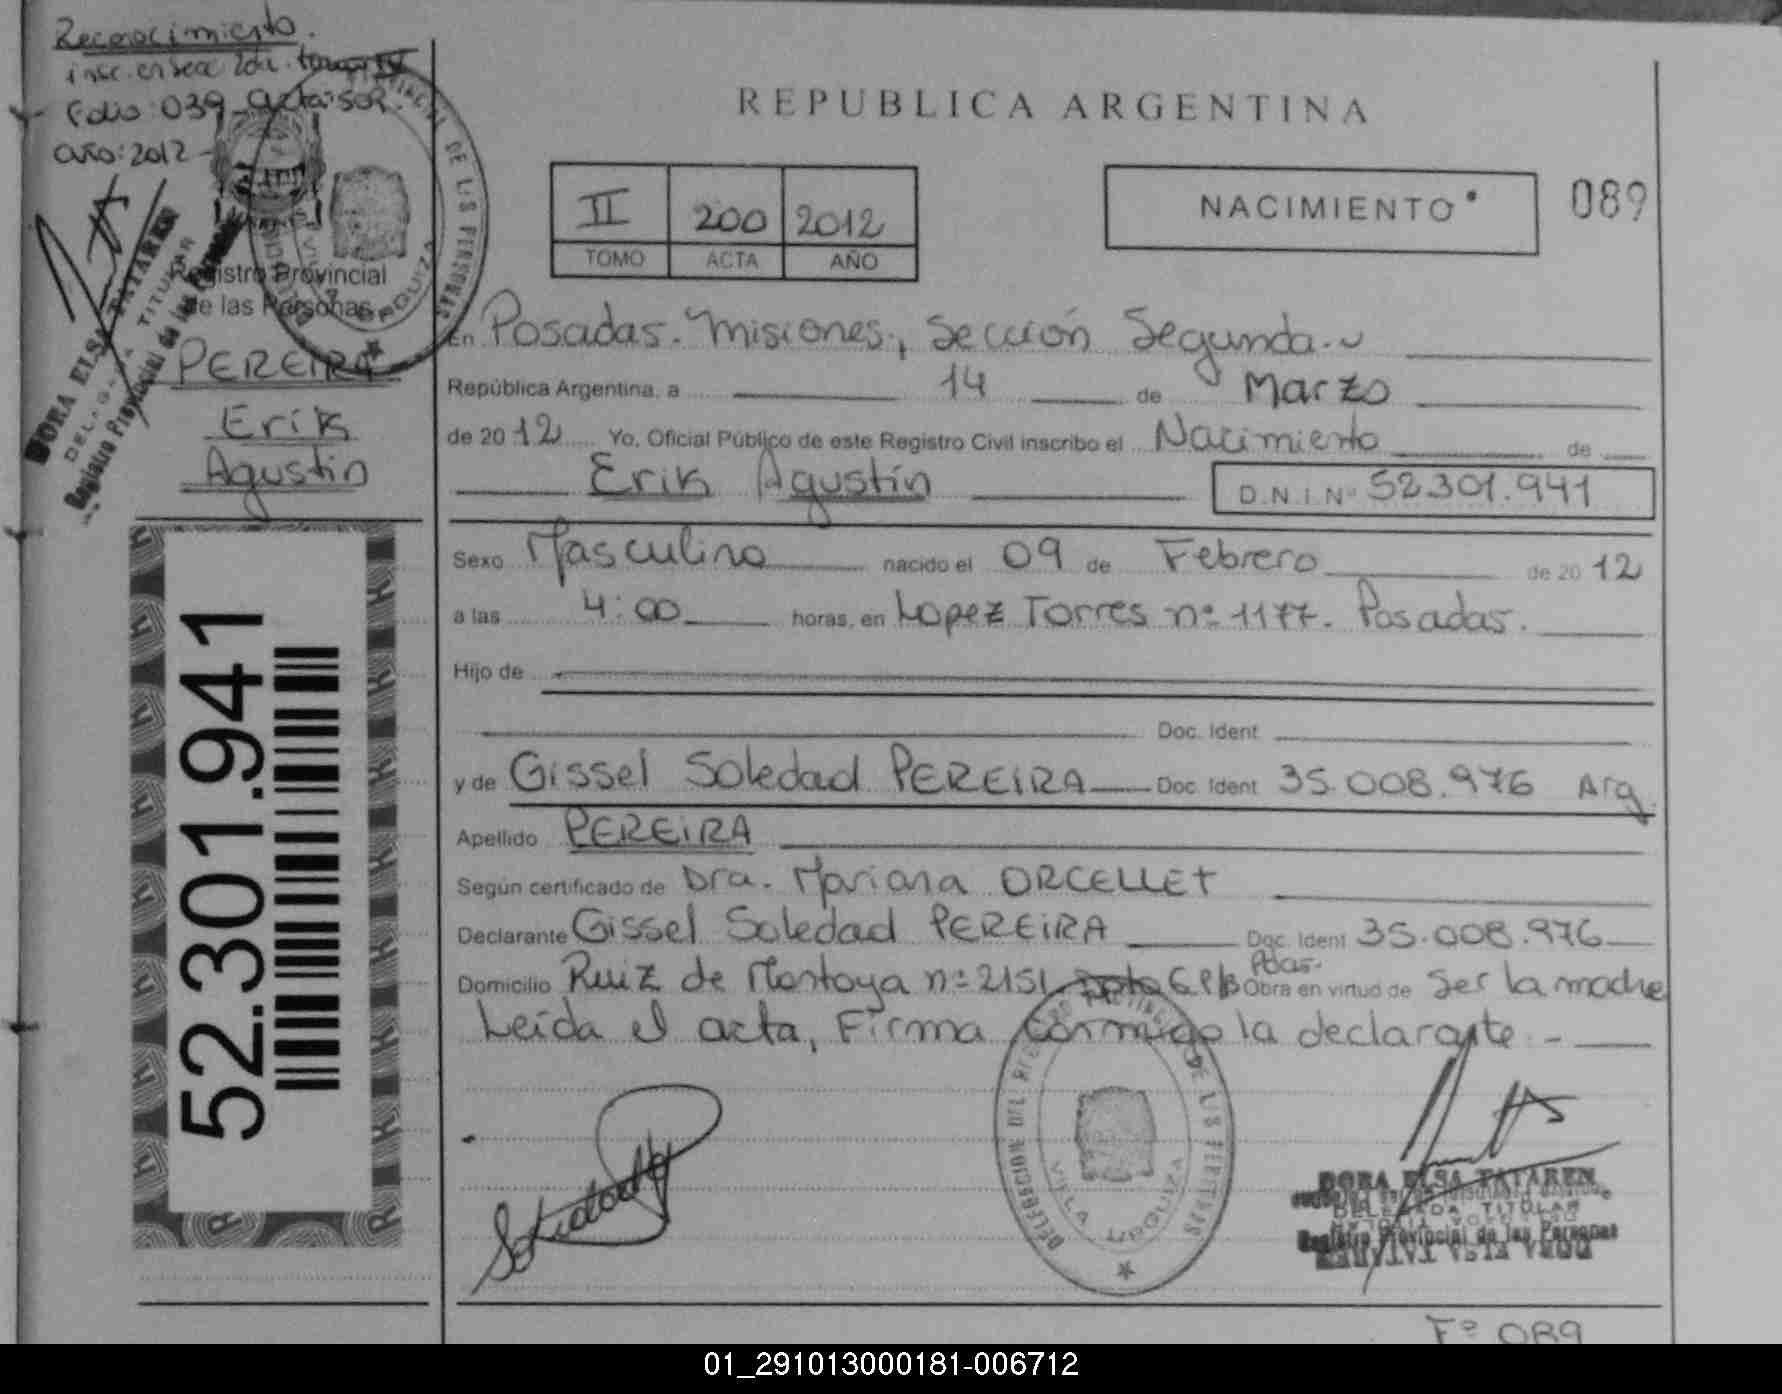 Reconocimiento.
insc. en secc 2da. tomo IV
Folio: 039 acta: 502.
año: 2012 -
Registro Provincial
de las Personas
PEREIRA
Erik
Agustin
52.301.941
DORA ELSA TATAREN
DELEGADA TITULAR
Registro Provincial de las Personas
REPUBLICA ARGENTINA
II 200 2012
TOMO ACTA AÑO
NACIMIENTO
089
En Posadas. Misiones, Sección Segunda.
República Argentina, a 14 de Marzo
de 2012 Yo, Oficial Público de este Registro Civil inscribo el Nacimiento de
Erik Agustín D.N.I. Nº 52.301.941
Sexo Masculino nacido el 09 de Febrero de 2012
a las 4:00 horas, en Lopez Torres nº 1177. Posadas.
Hijo de
Doc. Ident
y de Gissel Soledad PEREIRA Doc. Ident 35.008.976 Arg.
Apellido PEREIRA
Según certificado de Dra. Mariana ORCELLET
Declarante Gissel Soledad PEREIRA Doc. Ident 35.008.976
Domicilio Ruiz de Montoya nº 2151 Pdas. Obra en virtud de ser la madre
Leída el acta, Firma conmigo la declarante. -
DELEGACION DEL REGISTRO PROVINCIAL DE LAS PERSONAS
VILLA URQUIZA
DORA ELSA TATAREN
DELEGADA TITULAR
Registro Provincial de las Personas
Fº 089
01_291013000181-006712